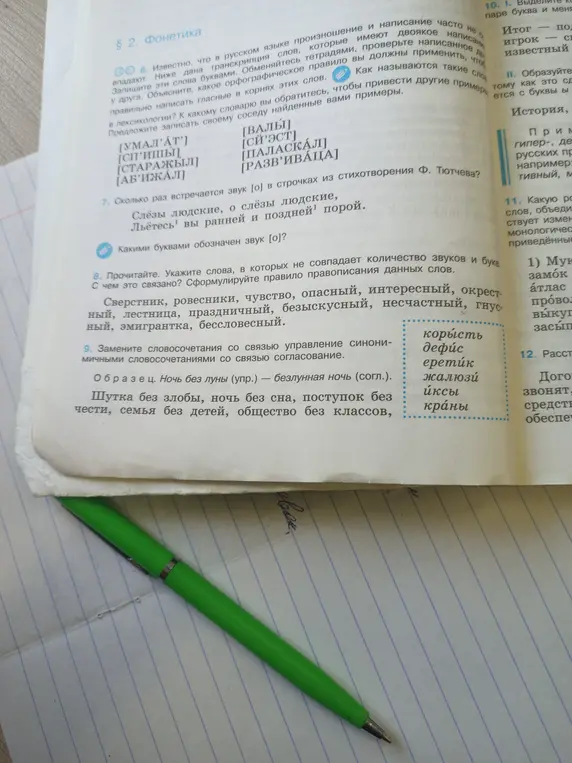 § 2. Фонетика
6. Известно, что в русском языке произношение и написание часто не
впадают. Ниже дана транскрипция слов, которые имеют двоякое написание
Запишите эти слова буквами. Обменяйтесь тетрадями, проверьте написанное д
у друга. Объясните, какое орфографическое правило вы должны применить, чтоб
правильно написать гласные в корнях этих слов. Как называются такие слов
в лексикологии? К какому словарю вы обратитесь, чтобы привести другие пример
Предложите записать своему соседу найденные вами примеры.
[УМАЛ'А́Т'] [ВАЛЫ́]
[СП'ИШЫ́] [СЙ'Э́СТ]
[СТАРАЖЫ́Л] [ПАЛАСКА́Л]
[АБ'ИЖА́Л] [РАЗВ'ИВА́ЦА]
7. Сколько раз встречается звук [о] в строчках из стихотворения Ф. Тютчева?
Слёзы людские, о слёзы людские,
Льётесь¹ вы ранней и поздней¹ порой.
Какими буквами обозначен звук [о]?
8. Прочитайте. Укажите слова, в которых не совпадает количество звуков и букв
С чем это связано? Сформулируйте правило правописания данных слов.
Сверстник, ровесники, чувство, опасный, интересный, окрест-
ный, лестница, праздничный, безыскусный, несчастный, гнус-
ный, эмигрантка, бессловесный.
9. Замените словосочетания со связью управление синони-
мичными словосочетаниями со связью согласование.
Образец. Ночь без луны (упр.) — безлунная ночь (согл.).
Шутка без злобы, ночь без сна, поступок без
чести, семья без детей, общество без классов,
коры́сть
дефи́с
ерети́к
жалюзи́
и́ксы
кра́ны
10. I. Выделите к
паре буква и мен
Итог — по
игрок — с
известный
II. Образуйте
тому как это сд
ется с буквы ы
История,
Прим
гипер-, де
русских пр
например
тивный, м
11. Какую р
слов, объеди
ствует измен
монологичес
приведённы
1) Му
замо́к
а́тлас
про́вол
вы́куп
засы́п
12. Расст
Дого
звонят,
средст
обеспеч